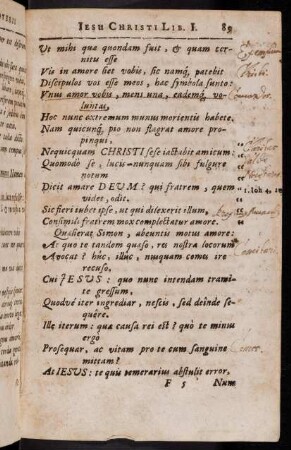 IESU CHRISTI LIB. I. 89
Ut mihi quæ quondam fuit, & quam cer-
nitu esse
Vis in amore liet vobis, sic namq; patebit
Discipulos vos esse meos, hac symbola sunto:
Vnus amor vobis, mens una, eademq; vo-
luntas,
Hoc nunc extremum munus morientis habete.
Nam quicunq; pio non flagrat amore pro-
pinqui,
Nequicquam CHRISTI sese iactabit amicum:
Quomodo se, lucis nunquam sibi fulgure
notum
Dicit amare DEUM? qui fratrem, quem 1. Ioh. 4. 20
videt, odit.
Sic fieri iubet ipse, ut qui dilexerit illum,
Consimili fratrem mox complectatur amore.
Qualierat Simon, abeuntis motus amore:
At quo te tandem quæso, res nostra locorum
Avocat? huc, illuc, nunquam comes ire
recuso,
Cui IESUS: quo nunc intendam trami-
te gressum,
Quodvé iter ingrediar, nescis, sed deinde se-
quêre.
Ille iterum: qua causa rei est? quò te minus
ergò
Prosequar, ac vitam pro te cum sanguine
mittam?
At IESUS: te quis temerarius abstulit error,
F 5 Num